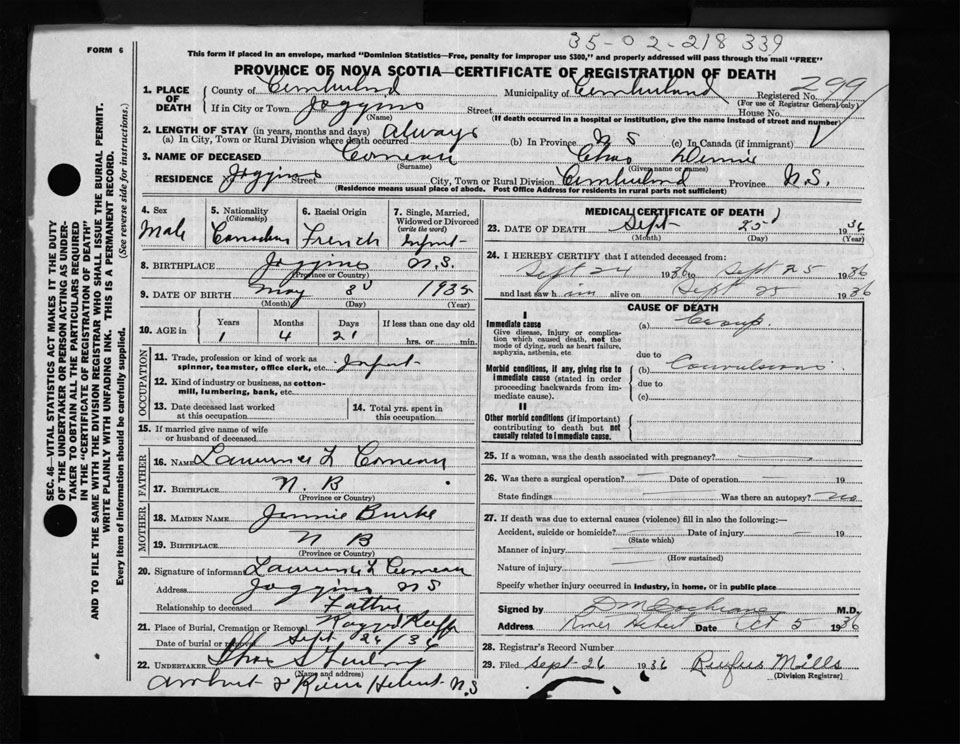 35-02-218 339
FORM 6
This form if placed in an envelope, marked "Dominion Statistics—Free, penalty for improper use $300," and properly addressed will pass through the mail "FREE"
PROVINCE OF NOVA SCOTIA—CERTIFICATE OF REGISTRATION OF DEATH
1. PLACE OF DEATH County of Cumberland Municipality of Cumberland Registered No. 2991
(For use of Registrar General only)
If in City or Town Joggins Street House No.
(Name) (If death occurred in a hospital or institution, give the name instead of street and number)
2. LENGTH OF STAY (in years, months and days) always
(a) In City, Town or Rural Division where death occurred (b) In Province N S (c) In Canada (if immigrant)
3. NAME OF DECEASED Comeau Chas
(Surname) (Given name or names)
RESIDENCE Joggins Street City, Town or Rural Division Cumberland Province N.S.
(Residence means usual place of abode. Post Office Address for residents in rural parts not sufficient)
4. Sex Male
5. Nationality (Citizenship) Canadian
6. Racial Origin French
7. Single, Married, Widowed or Divorced (write the word) Infant
8. BIRTHPLACE Joggins N.S.
(Province or Country)
9. DATE OF BIRTH May 3 1935
(Month) (Day) (Year)
10. AGE in Years 1 Months 4 Days 21 If less than one day old
hrs. or min.
OCCUPATION
11. Trade, profession or kind of work as spinner, teamster, office clerk, etc. Infant
12. Kind of industry or business, as cotton-mill, lumbering, bank, etc.
13. Date deceased last worked at this occupation
14. Total yrs. spent in this occupation
15. If married give name of wife or husband of deceased
FATHER
16. NAME Lawrence L Comeau
17. BIRTHPLACE N. B
(Province or Country)
MOTHER
18. MAIDEN NAME Jennie Burke
19. BIRTHPLACE N B
(Province or Country)
20. Signature of informant Lawrence L Comeau
Address Joggins N S
Relationship to deceased Father
21. Place of Burial, Cremation or Removal Ragged Reef
Date of burial or removal Sept 26/36
22. UNDERTAKER
(Name and address)
Amherst & River Hebert N.S
MEDICAL CERTIFICATE OF DEATH
23. DATE OF DEATH Sept 25 1936
(Month) (Day) (Year)
24. I HEREBY CERTIFY that I attended deceased from:
Sept 24 1936 to Sept 25 1936
and last saw h im alive on Sept 25 1936
CAUSE OF DEATH
I
Immediate cause
Give disease, injury or complication which caused death, not the mode of dying, such as heart failure, asphyxia, asthenia, etc
(a) Croup.
due to
Morbid conditions, if any, giving rise to immediate cause (stated in order proceeding backwards from immediate cause).
(b) Convulsions
due to
(c)
II
Other morbid conditions (if important) contributing to death but not causally related to immediate cause.
25. If a woman, was the death associated with pregnancy?
26. Was there a surgical operation? Date of operation 19
State findings Was there an autopsy? no
27. If death was due to external causes (violence) fill in also the following:—
Accident, suicide or homicide? Date of injury 19
(State which)
Manner of injury
(How sustained)
Nature of injury
Specify whether injury occurred in industry, in home, or in public place
Signed by D M Cochrane M.D.
Address River Hebert Date Oct 5 1936
28. Registrar's Record Number
29. Filed Sept 26 1936 Rufus Mills
(Division Registrar)
SEC. 46—VITAL STATISTICS ACT MAKES IT THE DUTY
OF THE UNDERTAKER OR PERSON ACTING AS UNDER-
TAKER TO OBTAIN ALL THE PARTICULARS REQUIRED
IN THE "CERTIFICATE OF REGISTRATION OF DEATH"
AND TO FILE THE SAME WITH THE DIVISION REGISTRAR WHO SHALL ISSUE THE BURIAL PERMIT.
WRITE PLAINLY WITH UNFADING INK. THIS IS A PERMANENT RECORD.
Every item of information should be carefully supplied. (See reverse side for instructions.)